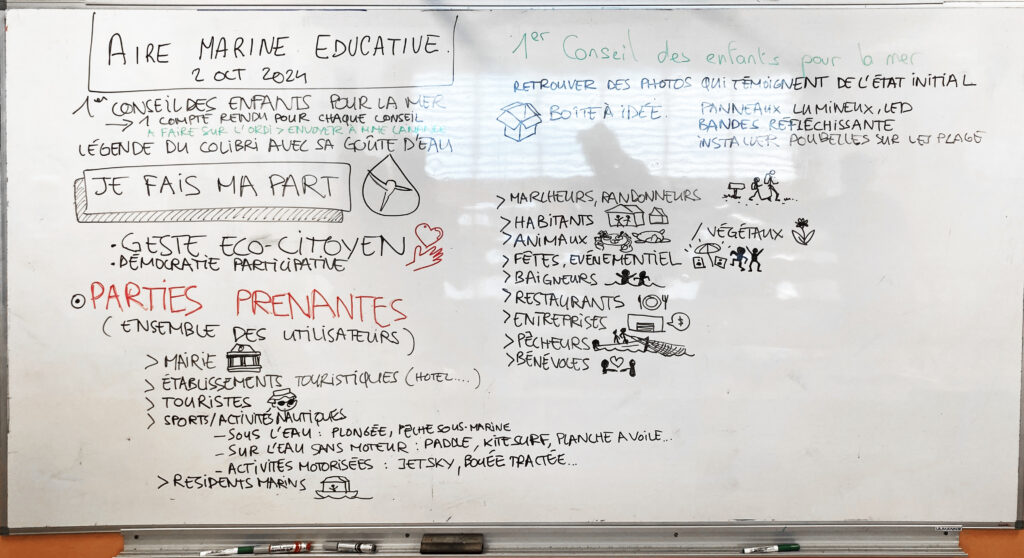 AIRE MARINE EDUCATIVE.
2 OCT 2024
1er CONSEIL DES ENFANTS POUR LA MER
→ 1 COMPTE RENDU POUR CHAQUE CONSEIL
A FAIRE SUR L'ORDI > ENVOYER A MME
LÉGENDE DU COLIBRI AVEC SA GOÛTE D'EAU
JE FAIS MA PART
• GESTE ECO-CITOYEN
• DÉMOCRATIE PARTICIPATIVE
PARTIES PRENANTES
(ENSEMBLE DES UTILISATEURS)
> MAIRIE
> ÉTABLISSEMENTS TOURISTIQUES (HOTEL....)
> TOURISTES
> SPORTS/ACTIVITÉ NAUTIQUES
– SOUS L'EAU : PLONGÉE, PÊCHE SOUS-MARINE
– SUR L'EAU SANS MOTEUR : PADDLE, KITESURF, PLANCHE A VOILE...
– ACTIVITÉS MOTORISÉES : JETSKY, BOUÉE TRACTÉE...
> RESIDENTS MARINS
1er Conseil des enfants pour la mer
RETROUVER DES PHOTOS QUI TÉMOIGNENT DE L'ÉTAT INITIAL
BOITE À IDÉE.
PANNEAUX LUMINEUX, LED
BANDES RÉFLÉCHISSANTE
INSTALLER POUBELLES SUR LES PLAGE
> MARCHEURS, RANDONNEURS
> HABITANTS
> ANIMAUX / VÉGÉTAUX
> FÊTES, EVÉNEMENTIEL
> BAIGNEURS
> RESTAURANTS
> ENTREPRISES $
> PÊCHEURS
> BÉNÉVOLES